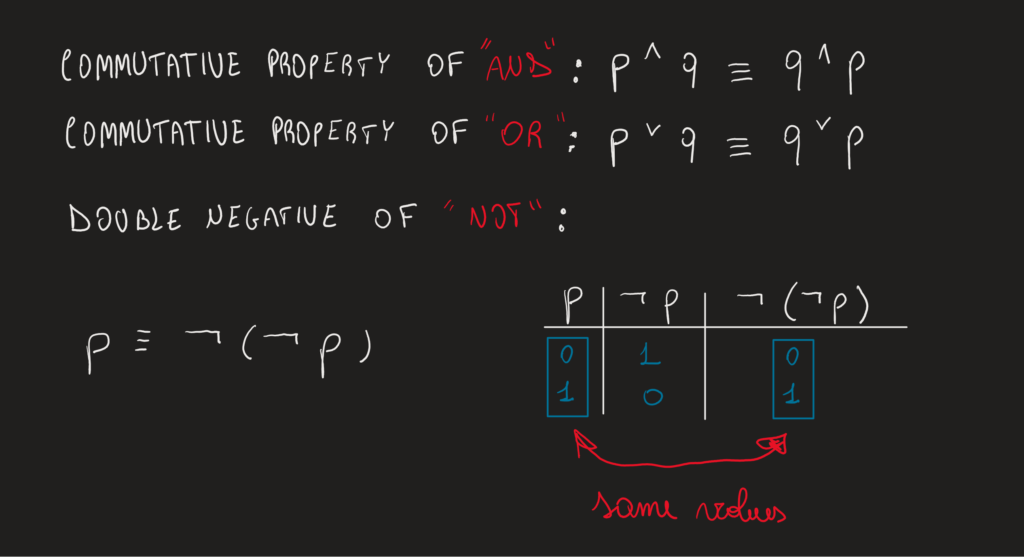 COMMUTATIVE PROPERTY OF "AND": p ∧ q ≡ q ∧ p
COMMUTATIVE PROPERTY OF "OR": p ∨ q ≡ q ∨ p
DOUBLE NEGATIVE OF "NOT":
p ≡ ¬(¬p)
p ¬p ¬(¬p)
0 1 0
1 0 1
same values